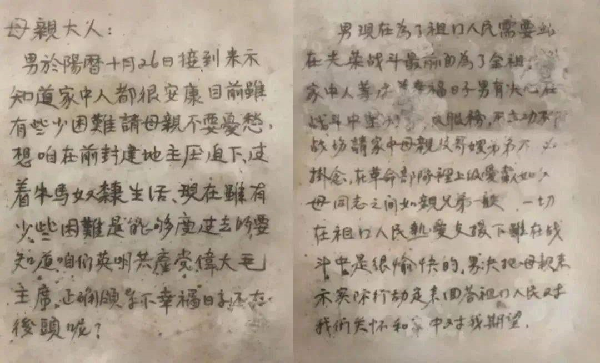 母親大人：
男於陽曆十月26日接到来示
知道家中人都很安康目前雖
有些少困難請母親不要憂愁，
想咱在前封建地主压迫下，过
着牛馬奴隸生活、現在雖有
少些困難是能够度过去的，要
知道咱们英明共產党偉大毛
主席，正确領导下幸福日子还在
後頭呢？
男現在為了祖国人民需要站
在光荣战斗最前面為了全祖
家中人等 幸福日子男有决心在
战斗中坚
战场請家中母親及哥嫂弟弟不必
掛念，在革命部隊裡上级愛戴如父
母同志之间如親兄弟一般 一切
在祖国人民熱愛支援下雖在战
斗中是很愉快的，男决把母親来
示实际行动走来回答祖国人民对
我们关怀和家中对我期望．